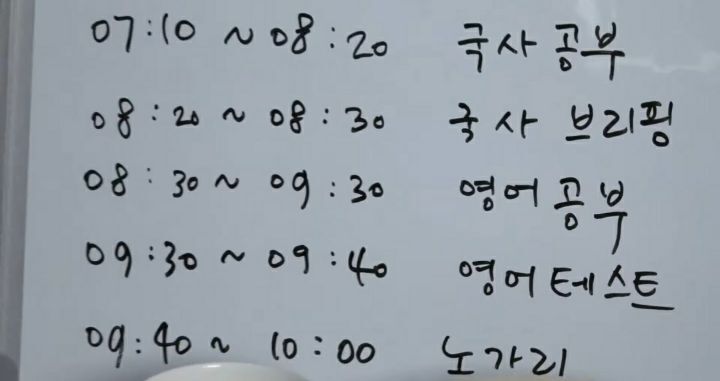 07:10 ~ 08:20 국사 공부
08:20 ~ 08:30 국사 브리핑
08:30 ~ 09:30 영어 공부
09:30 ~ 09:40 영어 테스트
09:40 ~ 10:00 노가리